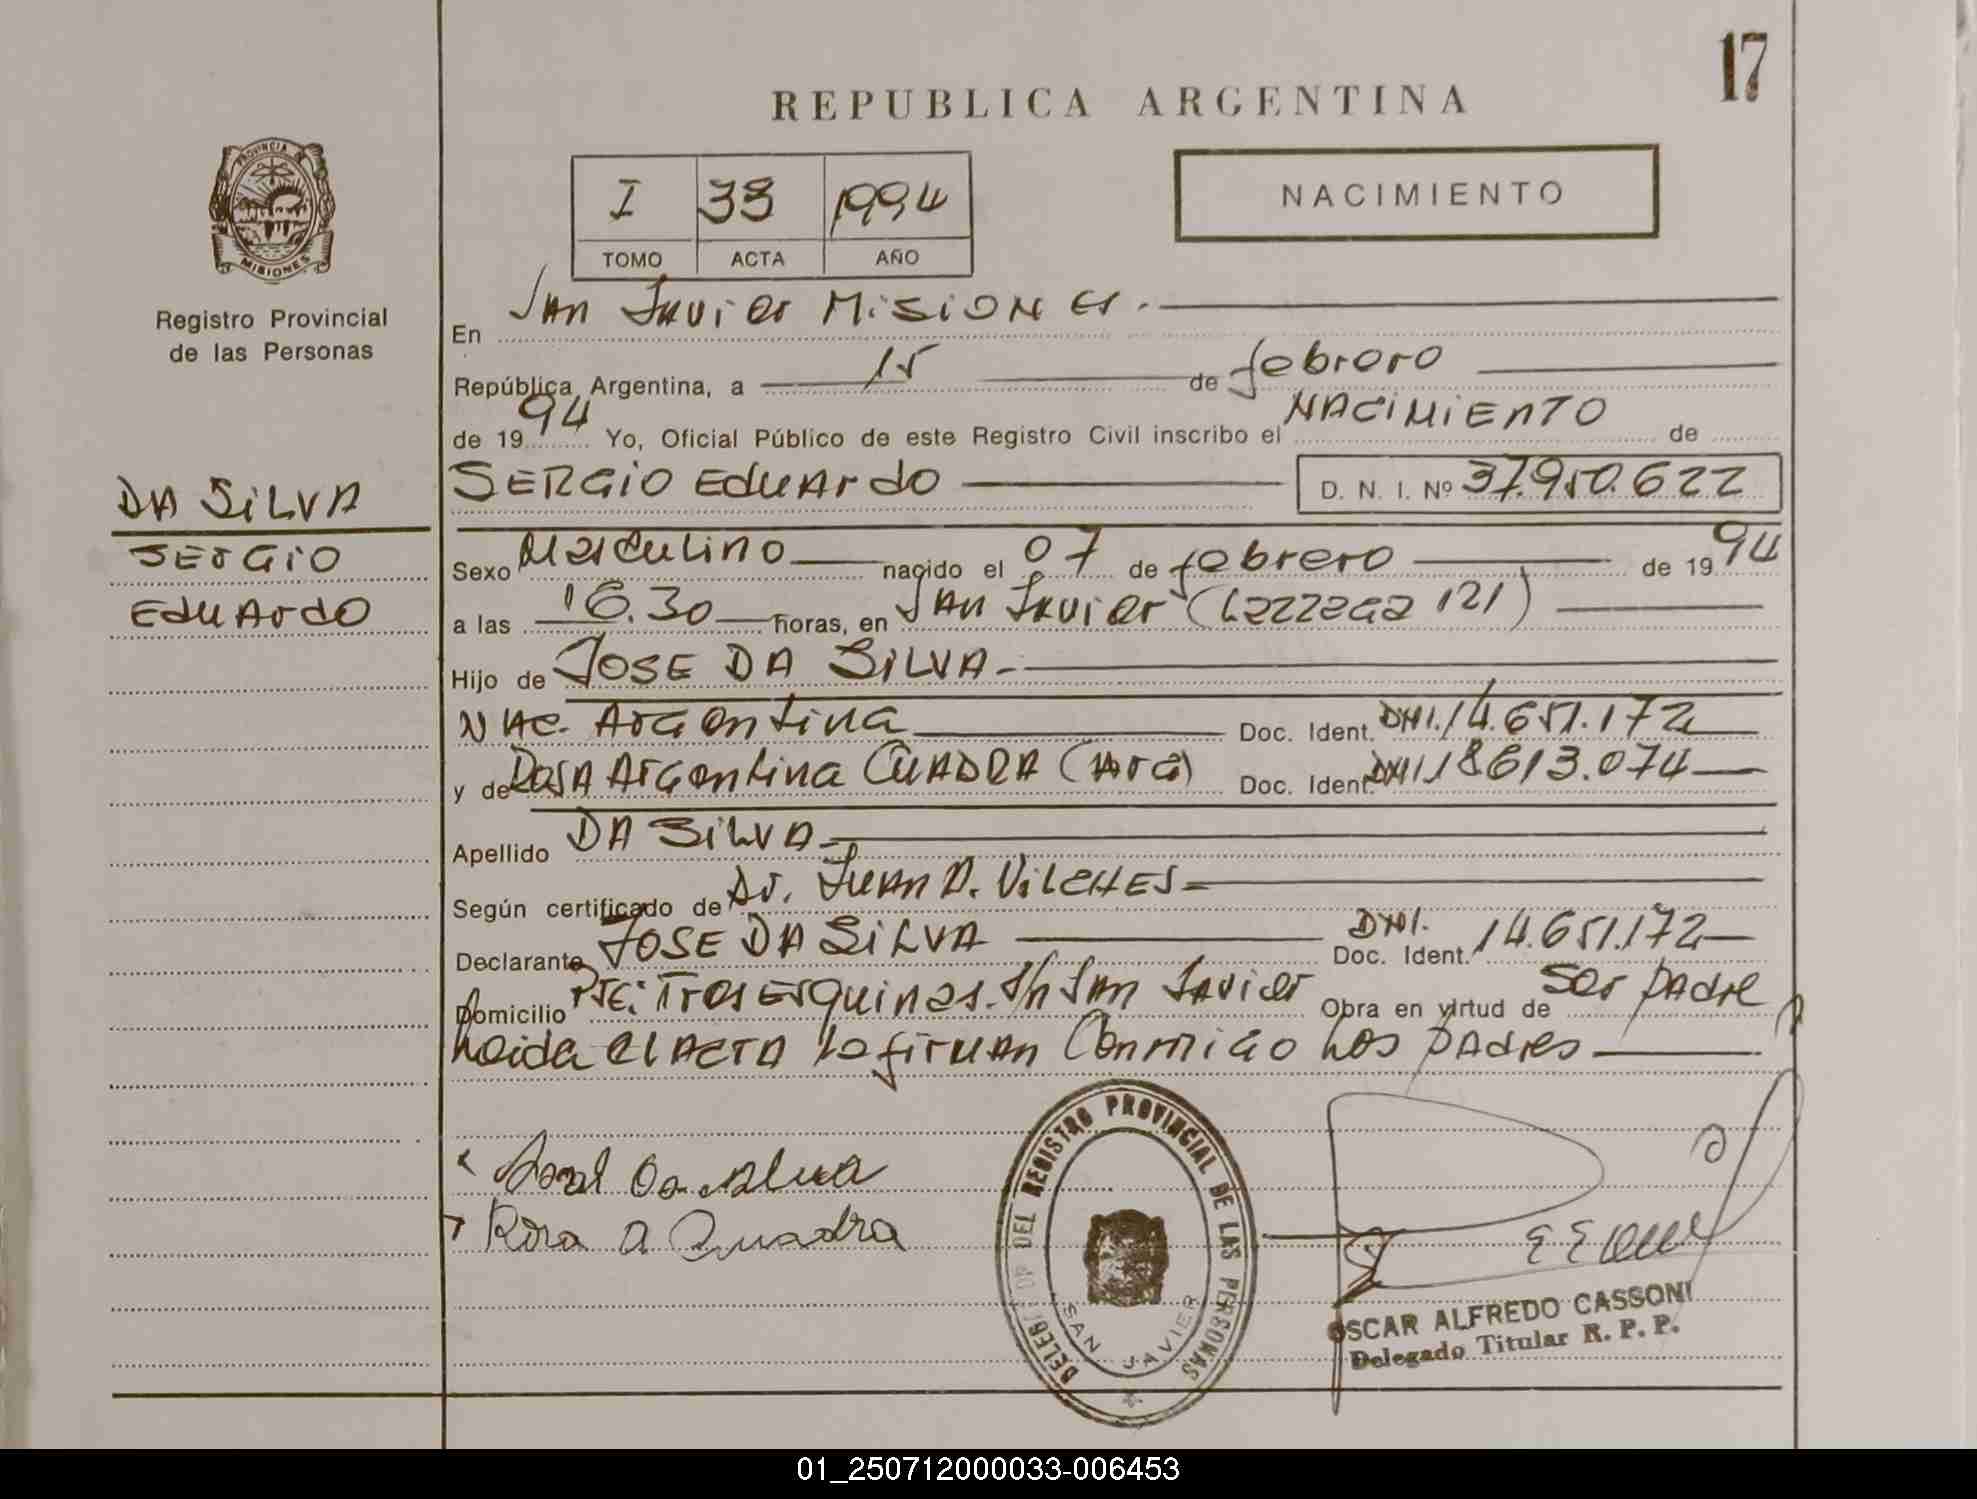 17
REPUBLICA ARGENTINA
PROVINCIA DE
MISIONES
Registro Provincial
de las Personas
I 33 1994
TOMO ACTA AÑO
NACIMIENTO
En San Javier Misiones.
República Argentina, a 15 de febrero
de 1994 Yo, Oficial Público de este Registro Civil inscribo el NACIMIENTO de
SERGIO Eduardo D. N. I. Nº 37.950.622
DA SILVA
SERGIO
Eduardo
Sexo Masculino nacido el 07 de febrero de 1994
a las 16.30 horas, en San Javier (Lezzaga 121)
Hijo de JOSE DA SILVA
Nac. Argentina Doc. Ident. DNI. 14.651.172
y de Rosa Argentina CUADRA (Arg) Doc. Ident. DNI 18613.074
Apellido DA SILVA
Según certificado de Dr. Juan D. VILCHES
Declarante JOSE DA SILVA Doc. Ident. DNI. 14.651.172
Domicilio Pje: Tres Esquinas. S/n San Javier Obra en virtud de ser padre
Leida el ACTA la firman Conmigo Los padres
Da Silva
Rosa A Quadra
DEL REGISTRO PROVINCIAL DE LAS PERSONAS
SAN JAVIER
OSCAR ALFREDO CASSONI
Delegado Titular R. P. P.
01_250712000033-006453